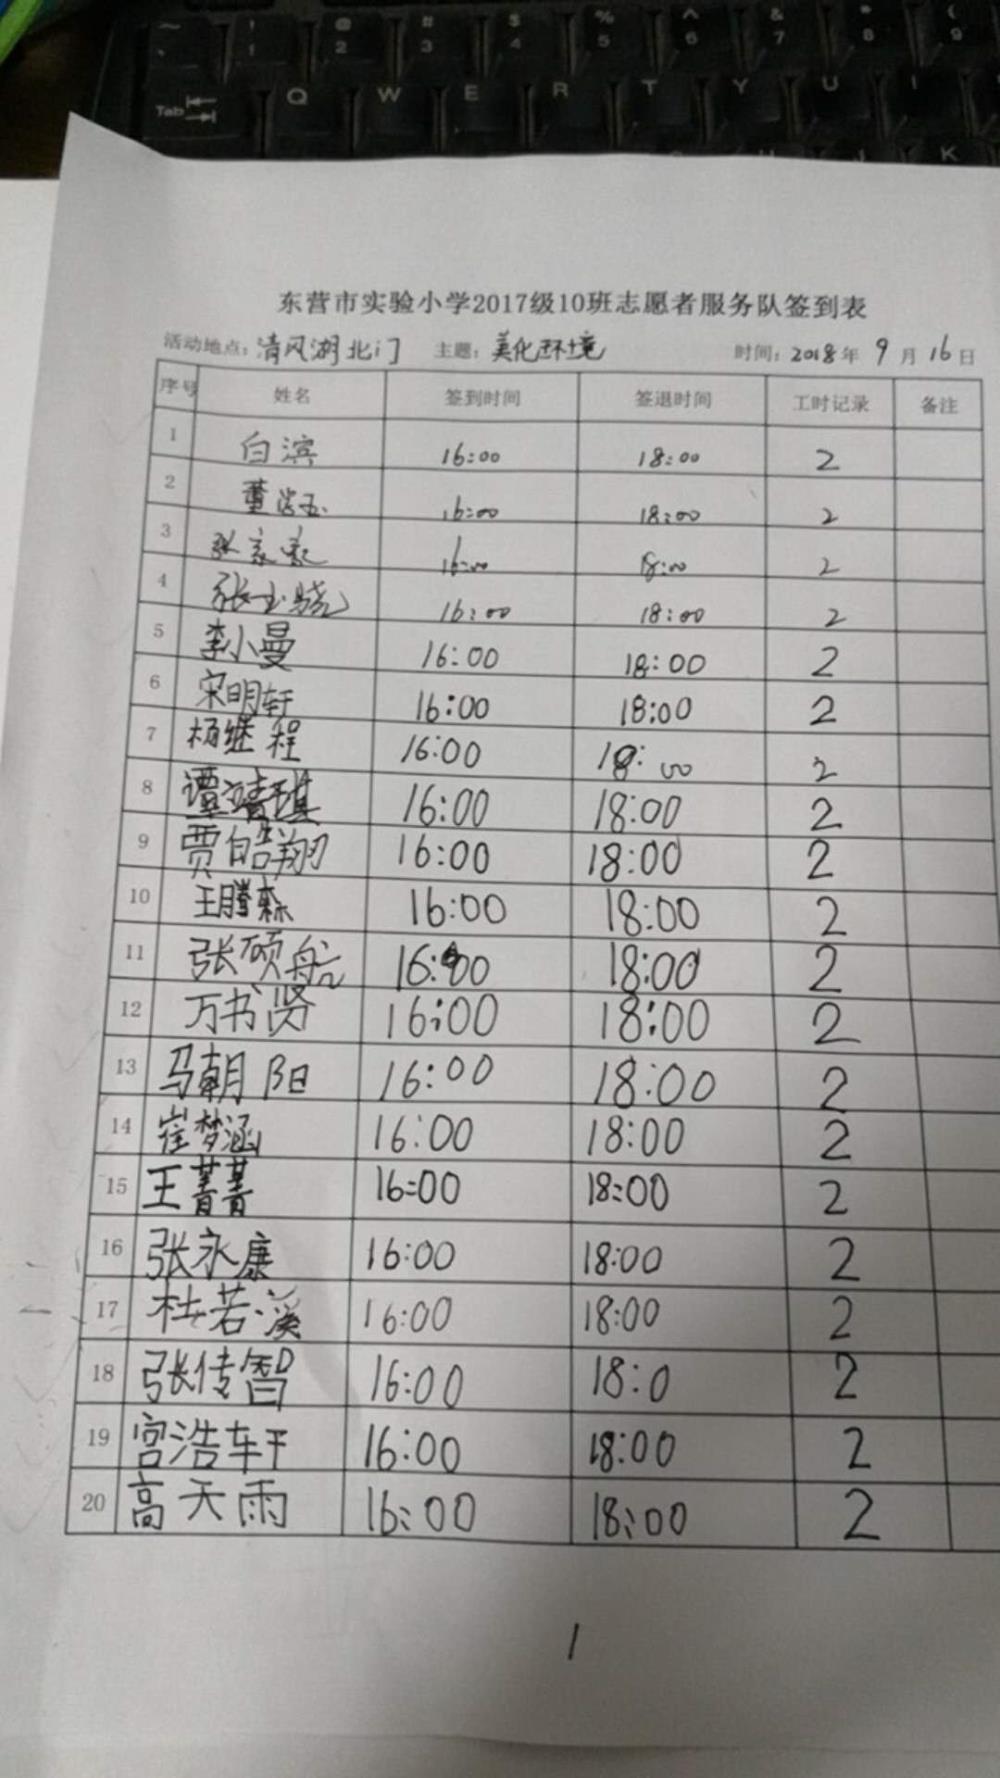 ~ ! @ # $ % ^ & * (
` 1 2 3 4 5 6 7 8 9
Tab Q W E R T Y U I
K
东营市实验小学2017级10班志愿者服务队签到表
活动地点：清风湖北门 主题：美化环境 时间：2018年9月16日
序号 姓名 签到时间 签退时间 工时记录 备注
1 白滨 16:00 18:00 2
2 董 16:00 18:00 2
3 张家 16:00 18:00 2
4 张玉骁 16:00 18:00 2
5 李小曼 16:00 18:00 2
6 宋明轩 16:00 18:00 2
7 杨继程 16:00 18:00 2
8 谭靖琪 16:00 18:00 2
9 贾皓翔 16:00 18:00 2
10 王腾森 16:00 18:00 2
11 张硕航 16:00 18:00 2
12 万书贤 16:00 18:00 2
13 马朝阳 16:00 18:00 2
14 崔梦涵 16:00 18:00 2
15 王菁菁 16:00 18:00 2
16 张永康 16:00 18:00 2
17 杜若溪 16:00 18:00 2
18 张传智 16:00 18:0 2
19 宫浩轩 16:00 18:00 2
20 高天雨 16:00 18:00 2
1